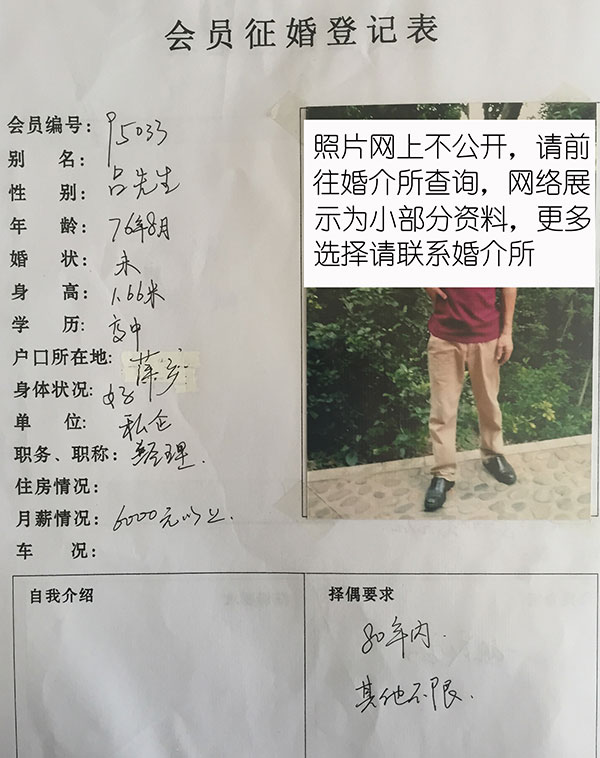 会员征婚登记表
会员编号：P5033
别 名：吕先生
性 别：
年 龄：76年8月
婚 状：未
身 高：1.66米
学 历：高中
户口所在地：萍乡
身体状况：好
单 位：私企
职务、职称：经理.
住房情况：
月薪情况：6000元以上.
车 况：
照片网上不公开，请前
往婚介所查询，网络展
示为小部分资料，更多
选择请联系婚介所
自我介绍
择偶要求
80年内.
其他不限.